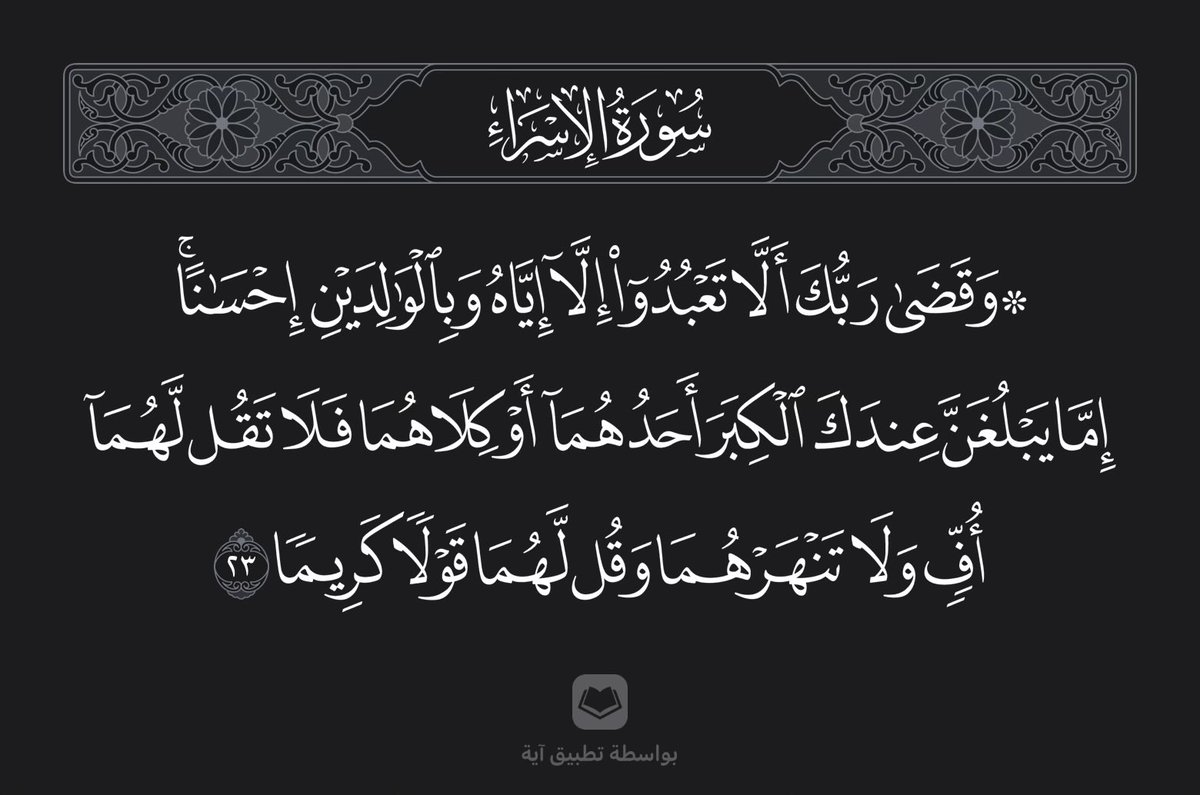 سُورَةُ الإِسْرَاءِ
۞ وَقَضَىٰ رَبُّكَ أَلَّا تَعْبُدُوٓا۟ إِلَّآ إِيَّاهُ وَبِٱلْوَٰلِدَيْنِ إِحْسَٰنًا ۚ
إِمَّا يَبْلُغَنَّ عِندَكَ ٱلْكِبَرَ أَحَدُهُمَآ أَوْ كِلَاهُمَا فَلَا تَقُل لَّهُمَآ
أُفٍّ وَلَا تَنْهَرْهُمَا وَقُل لَّهُمَا قَوْلًا كَرِيمًا ٢٣
بواسطة تطبيق آية